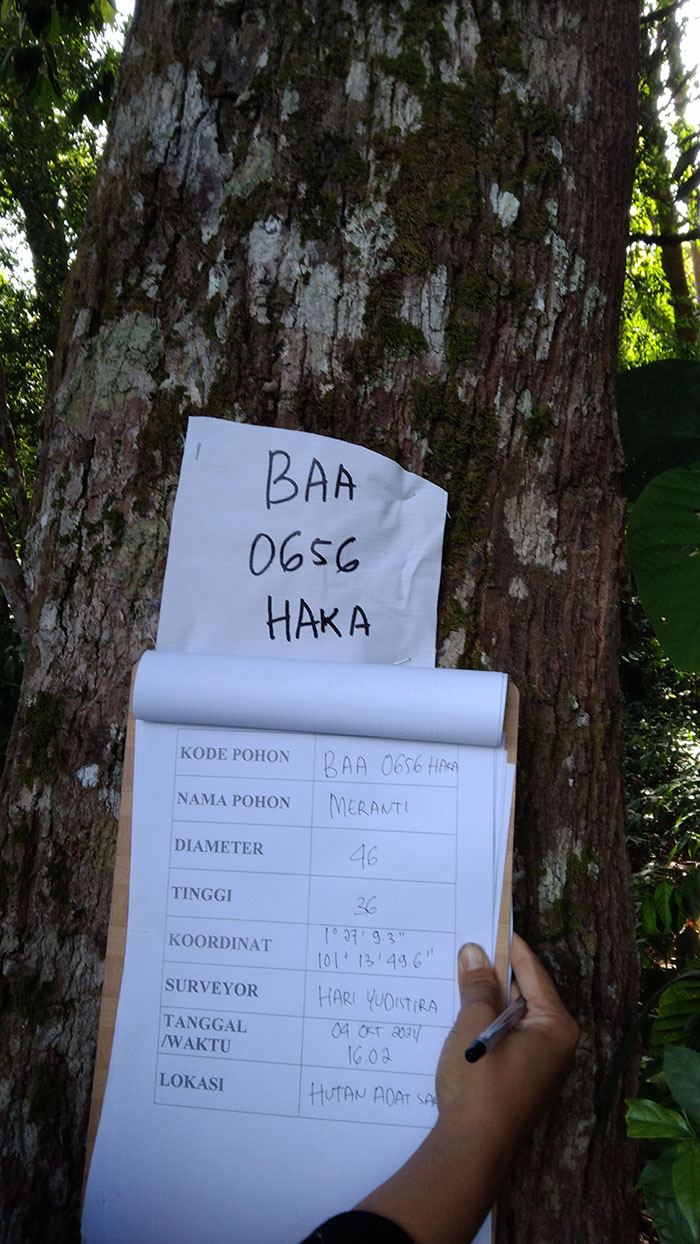 BAA
0656
HAKA
KODE POHON BAA 0656 HAKA
NAMA POHON MERANTI
DIAMETER 46
TINGGI 36
KOORDINAT 1° 27' 9.3"
101° 13' 49.6"
SURVEYOR HARI YUDISTIRA
TANGGAL 04 OKT 2021/
/WAKTU 16.02
LOKASI HUTAN ADAT